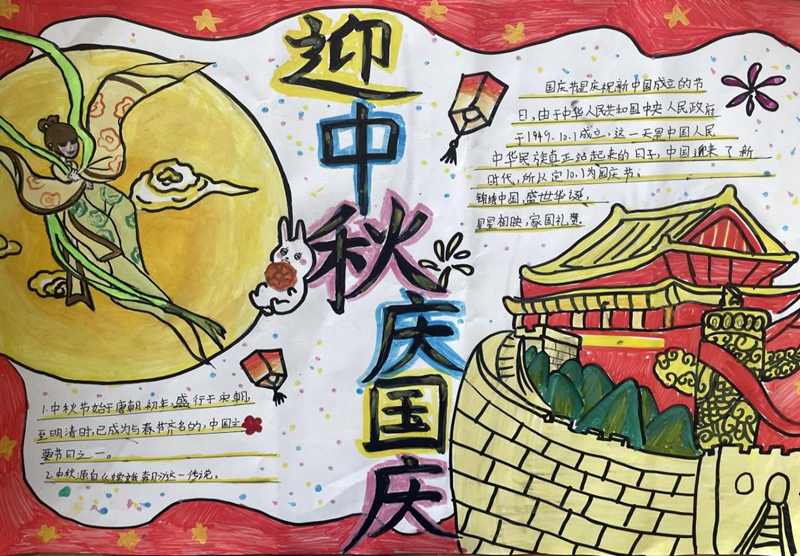 迎中秋庆国庆
国庆节是庆祝新中国成立的节
日,由于中华人民共和国中央人民政府
于1949.10.1成立,这一天是中国人民
中华民族真正站起来的日子,中国迎来了新
时代,所以定10.1为国庆节。
锦绣中国,盛世华诞,
星星相映,家国礼赞
1.中秋节始于唐朝初年,盛行于宋朝,
至明清时,已成为与春节齐名的,中国主
要节日之一。
2.中秋源自《嫦娥奔月》这一传说。